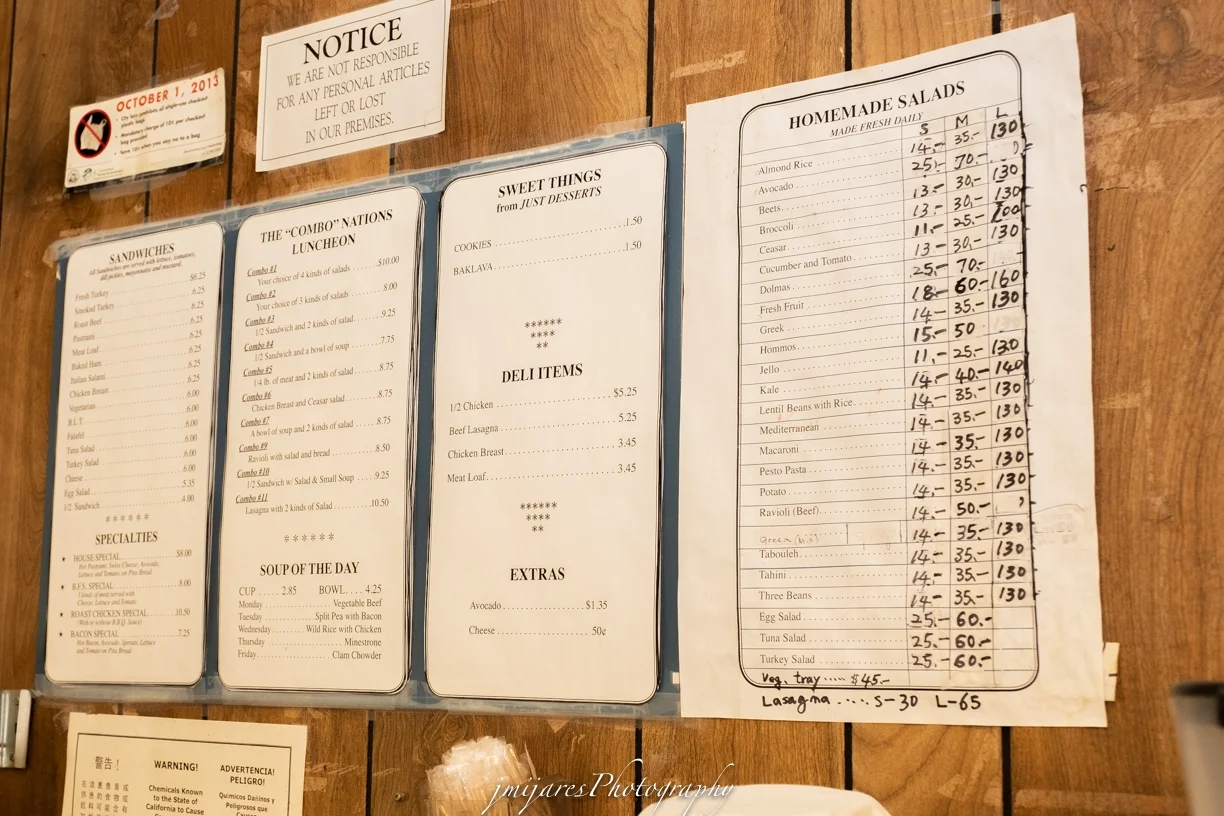 OCTOBER 1, 2013
City law prohibits all single-use checkout plastic bags
Mandatory charge of 10¢ per checkout bag provided
NOTICE
WE ARE NOT RESPONSIBLE
FOR ANY PERSONAL ARTICLES
LEFT OR LOST
IN OUR PREMISES.
SANDWICHES
All Sandwiches are served with lettuce, tomatoes,
dill pickles, mayonnaise and mustard.
Fresh Turkey $6.25
Smoked Turkey 6.25
Roast Beef 6.25
Pastrami 6.25
Meat Loaf 6.25
Baked Ham 6.25
Italian Salami 6.25
Chicken Breast 6.25
Vegetarian 6.00
B.L.T. 6.00
Falafel 6.00
Tuna Salad 6.00
Turkey Salad 6.00
Cheese 6.00
Egg Salad 5.35
1/2 Sandwich 4.00
******
SPECIALTIES
★ HOUSE SPECIAL $8.00
Hot Pastrami, Swiss Cheese, Avocado,
Lettuce and Tomato on Pita Bread
★ B.F.S. SPECIAL 8.00
3 kinds of meat served with
Cheese, Lettuce and Tomato
★ ROAST CHICKEN SPECIAL 10.50
(With or without B.B.Q. Sauce)
★ BACON SPECIAL 7.25
Hot Bacon, Avocado, Sprouts, Lettuce
and Tomato on Pita Bread
THE "COMBO" NATIONS
LUNCHEON
Combo #1
Your choice of 4 kinds of salads $10.00
Combo #2
Your choice of 3 kinds of salads 8.00
Combo #3
1/2 Sandwich and 2 kinds of salad 9.25
Combo #4
1/2 Sandwich and a bowl of soup 7.75
Combo #5
1/4 lb. of meat and 2 kinds of salad 8.75
Combo #6
Chicken Breast and Ceasar salad 8.75
Combo #7
A bowl of soup and 2 kinds of salad 8.75
Combo #9
Ravioli with salad and bread 8.50
Combo #10
1/2 Sandwich w/ Salad & Small Soup 9.25
Combo #11
Lasagna with 2 kinds of Salad 10.50
******
SOUP OF THE DAY
CUP 2.85 BOWL 4.25
Monday Vegetable Beef
Tuesday Split Pea with Bacon
Wednesday Wild Rice with Chicken
Thursday Minestrone
Friday Clam Chowder
SWEET THINGS
from JUST DESSERTS
COOKIES 1.50
BAKLAVA 1.50
******
****
**
DELI ITEMS
1/2 Chicken $5.25
Beef Lasagna 5.25
Chicken Breast 3.45
Meat Loaf 3.45
******
****
**
EXTRAS
Avocado $1.35
Cheese 50¢
HOMEMADE SALADS
MADE FRESH DAILY
S M L
Almond Rice 14.- 35.- 130
Avocado 25.- 70.-
Beets 13.- 30.- 130
Broccoli 13.- 30.- 130
Ceasar 11.- 25.- 100
Cucumber and Tomato 13.- 30.- 130
Dolmas 25.- 70.-
Fresh Fruit 18.- 60.- 160
Greek 14.- 35.- 130
Hommos 15.- 50
Jello 11.- 25.- 130
Kale 14.- 40.- 140
Lentil Beans with Rice 14.- 35.- 130
Mediterranean 14.- 35.- 130
Macaroni 14.- 35.- 130
Pesto Pasta 14.- 35.- 130
Potato 14.- 35.- 130
Ravioli (Beef) 14.- 50.-
Green 14.- 35.- 130
Tabouleh 14.- 35.- 130
Tahini 14.- 35.- 130
Three Beans 14.- 35.- 130
Egg Salad 25.- 60.-
Tuna Salad 25.- 60.-
Turkey Salad 25.- 60.-
Veg. tray ..... $45.-
Lasagna ..... S-30 L-65
警告!
WARNING!
Chemicals Known
to the State of
California to Cause
ADVERTENCIA!
PELIGRO!
Quimicos Dañinos y
Peligrosos que
jmijaresPhotography